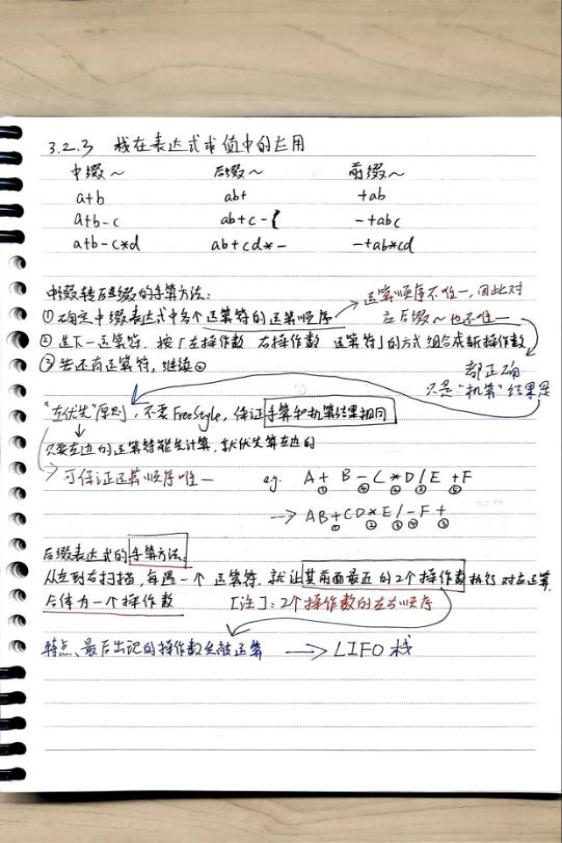 3.2.3 栈在表达式求值中的应用
中缀~ 后缀~ 前缀~
a+b ab+ +ab
a+b-c ab+c- -+abc
a+b-c*d ab+cd*- -+ab*cd
中缀转后缀的手算方法:
①确定中缀表达式中各个运算符的运算顺序 → 运算顺序不唯一,因此对
应后缀~也不唯一
②选下一运算符,按「左操作数 右操作数 运算符」的方式组合成新操作数
③若还有运算符,继续②
都正确
只是"机算"结果是
"左优先"原则,不要FreeStyle,保证手算和机算结果相同
只要左边的运算符能先计算,就优先算左边的
可保证运算顺序唯一
eg. A + B - C * D / E + F
① ④ ② ③ ⑤
→ AB+CD*E/-F+
① ② ③ ④ ⑤
后缀表达式的手算方法:
从左到右扫描,每遇一个运算符,就让其前面最近的2个操作数执行对应运算,
合体为一个操作数 [注]:2个操作数的左右顺序
特点、最后出现的操作数先被运算 → LIFO 栈